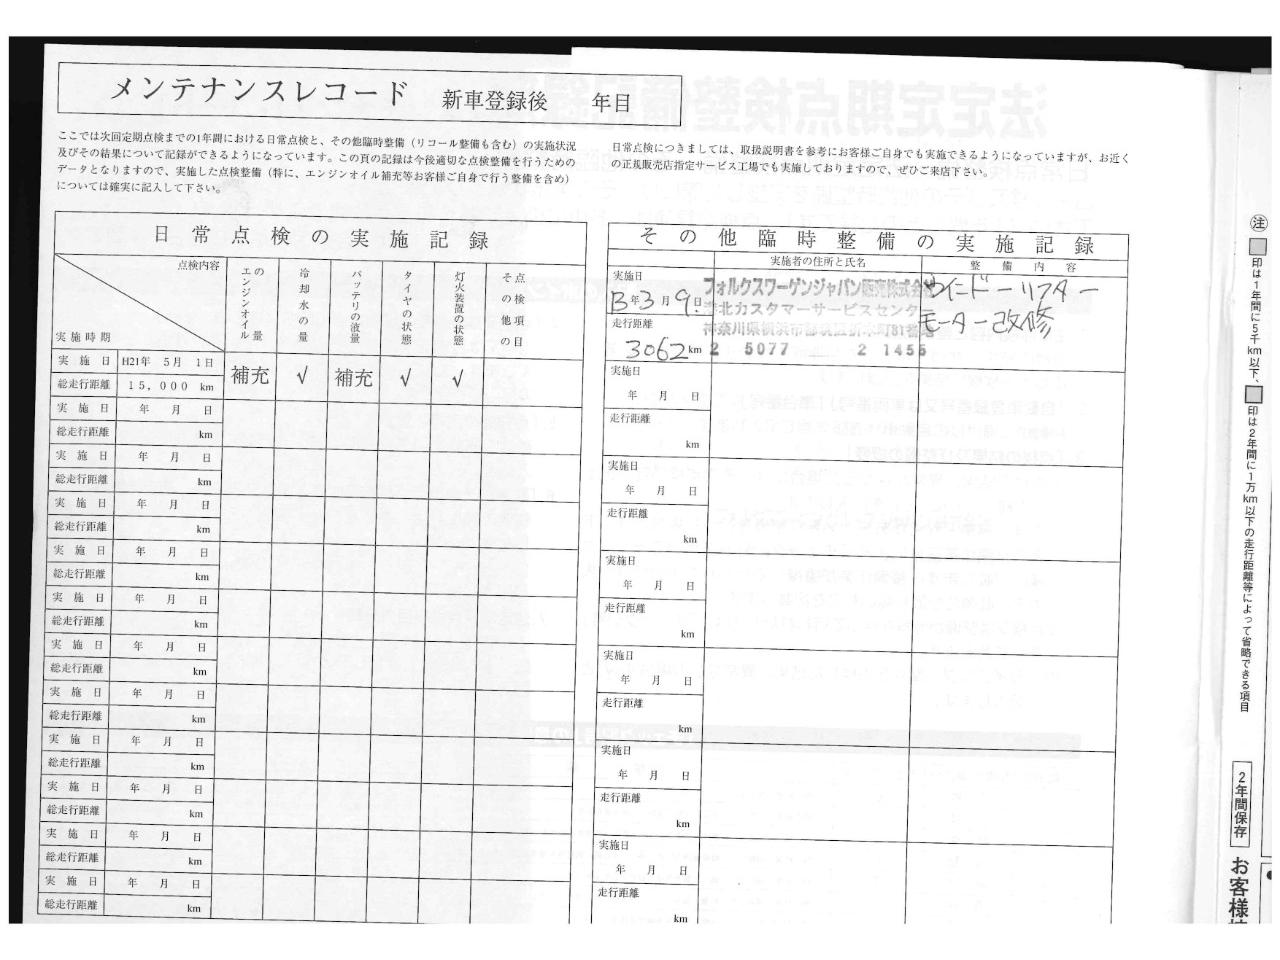 メンテナンスレコード 新車登録後 年目
ここでは次回定期点検までの1年間における日常点検と、その他臨時整備（リコール整備も含む）の実施状況
及びその結果について記録ができるようになっています。この頁の記録は今後適切な点検整備を行うための
データとなりますので、実施した点検整備（特に、エンジンオイル補充等お客様ご自身で行う整備を含め）
については確実に記入して下さい。
日常点検につきましては、取扱説明書を参考にお客様ご自身でも実施できるようになっていますが、お近く
の正規販売店指定サービス工場でも実施しておりますので、ぜひご来店下さい。
日常点検の実施記録
点検内容
実施時期
エンジンオイルの量
冷却水の量
バッテリの液量
タイヤの状態
灯火装置の状態
その他の点検項目
実施日 H21年 5月 1日
補充 √ 補充 √ √
総走行距離 15,000 km
実施日 年 月 日
総走行距離 km
実施日 年 月 日
総走行距離 km
実施日 年 月 日
総走行距離 km
実施日 年 月 日
総走行距離 km
実施日 年 月 日
総走行距離 km
実施日 年 月 日
総走行距離 km
実施日 年 月 日
総走行距離 km
実施日 年 月 日
総走行距離 km
実施日 年 月 日
総走行距離 km
実施日 年 月 日
総走行距離 km
実施日 年 月 日
総走行距離 km
その他臨時整備の実施記録
実施者の住所と氏名 整備内容
実施日
年3月9日
走行距離
3062 km
フォルクスワーゲンジャパン販売株式会社
港北カスタマーサービスセンター
神奈川県横浜市都筑区折本町
2 5077 2 1455
ウインドーリフター
モーター改修
実施日
年 月 日
走行距離
km
実施日
年 月 日
走行距離
km
実施日
年 月 日
走行距離
km
実施日
年 月 日
走行距離
km
実施日
年 月 日
走行距離
km
実施日
年 月 日
走行距離
km
注 印は1年間に5千km以下、印は2年間に1万km以下の走行距離等によって省略できる項目
2年間保存
お客様